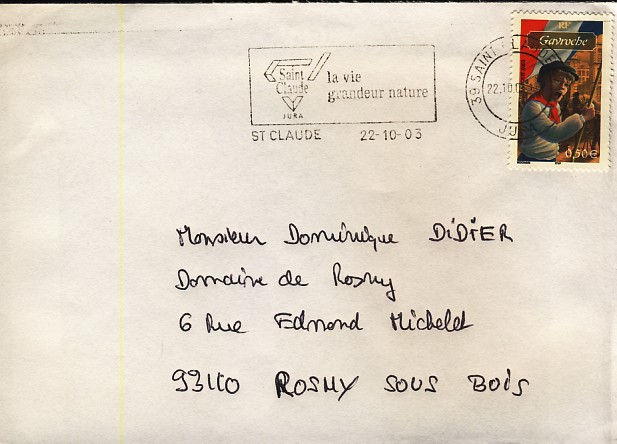 Saint Claude
JURA
la vie
grandeur nature
ST CLAUDE 22-10-03
39 SAINT CLAUDE
22.10.0
JU
RF
Gavroche
0,50€
Monsieur Dominique DIDIER
Domaine de Rosny
6 Rue Edmond Michelet
93110 ROSNY SOUS BOIS